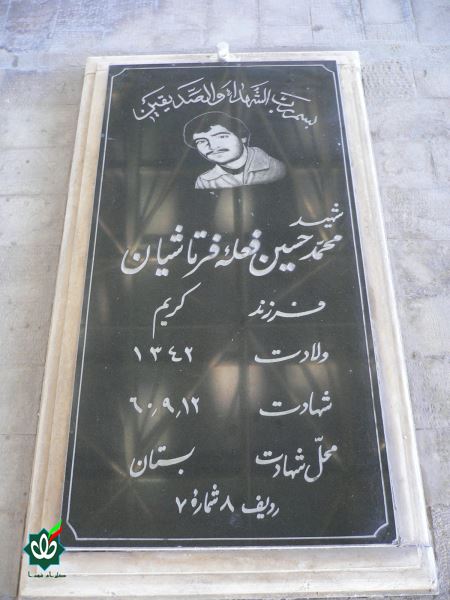 بسم رب الشهداء والصدیقین
شهید
محمد حسین فعله فرتاشیان
فرزند کریم
ولادت ۱۳۴۲
شهادت ۶۰٫۹٫۱۲
محل شهادت بستان
ردیف ۸ شمارهٔ ۷